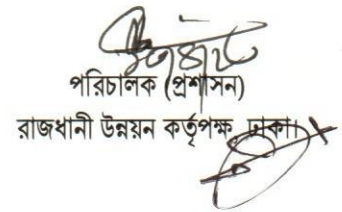 পরিচালক (প্রশাসন)
রাজধানী উন্নয়ন কর্তৃপক্ষ, ঢাকা।